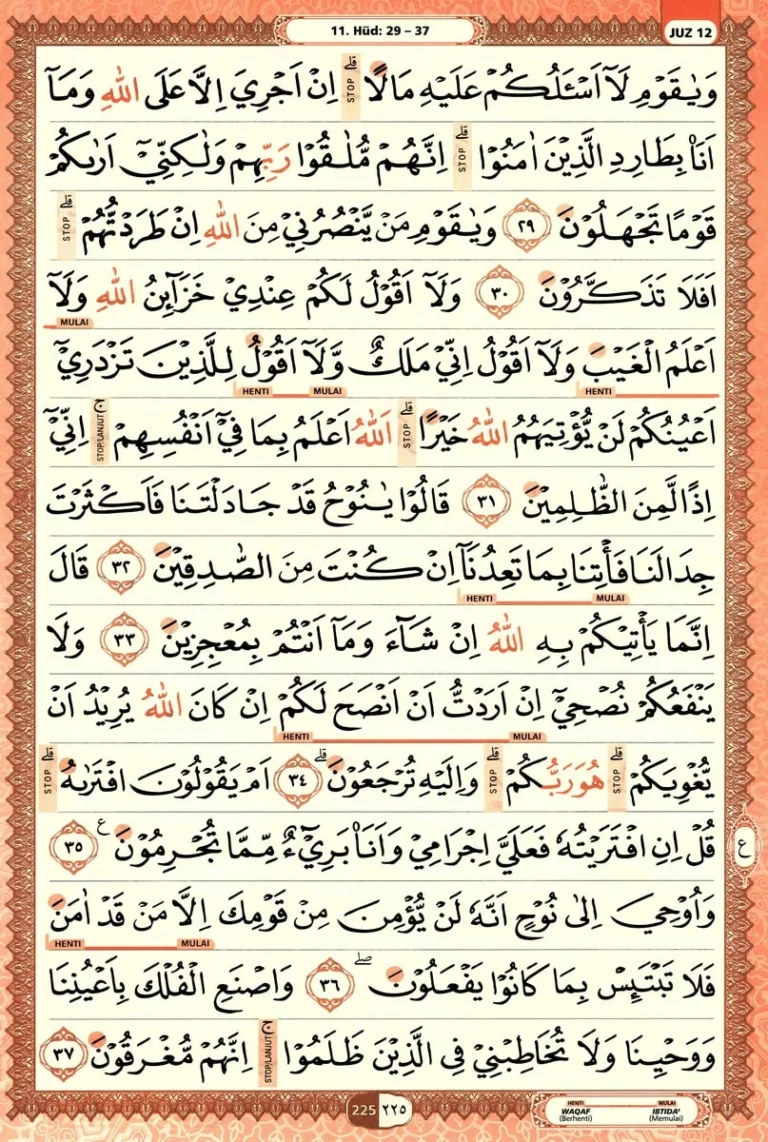 11. Hūd: 29 – 37
JUZ 12
وَيٰقَوْمِ لَآ اَسْـَٔلُكُمْ عَلَيْهِ مَالًاۗ اِنْ اَجْرِيَ اِلَّا عَلَى اللّٰهِ وَمَآ
اَنَا۠ بِطَارِدِ الَّذِيْنَ اٰمَنُوْاۗ اِنَّهُمْ مُّلٰقُوْا رَبِّهِمْ وَلٰكِنِّيْٓ اَرٰىكُمْ
قَوْمًا تَجْهَلُوْنَ ٢٩ وَيٰقَوْمِ مَنْ يَّنْصُرُنِيْ مِنَ اللّٰهِ اِنْ طَرَدْتُّهُمْۗ
اَفَلَا تَذَكَّرُوْنَ ٣٠ وَلَآ اَقُوْلُ لَكُمْ عِنْدِيْ خَزَاۤىِٕنُ اللّٰهِ وَلَآ
MULAI
اَعْلَمُ الْغَيْبَ وَلَآ اَقُوْلُ اِنِّيْ مَلَكٌ وَّلَآ اَقُوْلُ لِلَّذِيْنَ تَزْدَرِيْٓ
HENTI MULAI HENTI
اَعْيُنُكُمْ لَنْ يُّؤْتِيَهُمُ اللّٰهُ خَيْرًاۗ اَللّٰهُ اَعْلَمُ بِمَا فِيْٓ اَنْفُسِهِمْۚ اِنِّيْٓ
اِذًا لَّمِنَ الظّٰلِمِيْنَ ٣١ قَالُوْا يٰنُوْحُ قَدْ جَادَلْتَنَا فَاَكْثَرْتَ
جِدَالَنَا فَأْتِنَا بِمَا تَعِدُنَآ اِنْ كُنْتَ مِنَ الصّٰدِقِيْنَ ٣٢ قَالَ
MULAI HENTI
اِنَّمَا يَأْتِيْكُمْ بِهِ اللّٰهُ اِنْ شَاۤءَ وَمَآ اَنْتُمْ بِمُعْجِزِيْنَ ٣٣ وَلَا
يَنْفَعُكُمْ نُصْحِيْٓ اِنْ اَرَدْتُّ اَنْ اَنْصَحَ لَكُمْ اِنْ كَانَ اللّٰهُ يُرِيْدُ اَنْ
MULAI HENTI
يُّغْوِيَكُمْۗ هُوَ رَبُّكُمْۗ وَاِلَيْهِ تُرْجَعُوْنَۗ ٣٤ اَمْ يَقُوْلُوْنَ افْتَرٰىهُۗ
قُلْ اِنِ افْتَرَيْتُهٗ فَعَلَيَّ اِجْرَامِيْ وَاَنَا۠ بَرِيْۤءٌ مِّمَّا تُجْرِمُوْنَ ࣖ ٣٥
ع
وَاُوْحِيَ اِلٰى نُوْحٍ اَنَّهٗ لَنْ يُّؤْمِنَ مِنْ قَوْمِكَ اِلَّا مَنْ قَدْ اٰمَنَ
MULAI HENTI
فَلَا تَبْتَىِٕسْ بِمَا كَانُوْا يَفْعَلُوْنَۖ ٣٦ وَاصْنَعِ الْفُلْكَ بِاَعْيُنِنَا
وَوَحْيِنَا وَلَا تُخَاطِبْنِيْ فِى الَّذِيْنَ ظَلَمُوْاۚ اِنَّهُمْ مُّغْرَقُوْنَ ٣٧
225 ٢٢٥
HENTI MULAI
WAQAF IBTIDA'
(Berhenti) (Memulai)